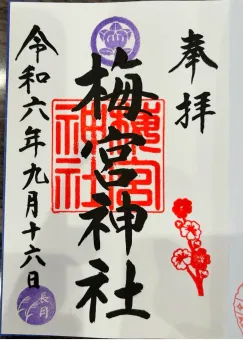 奉拝
梅宮神社
神社
令和六年九月十六日
長月